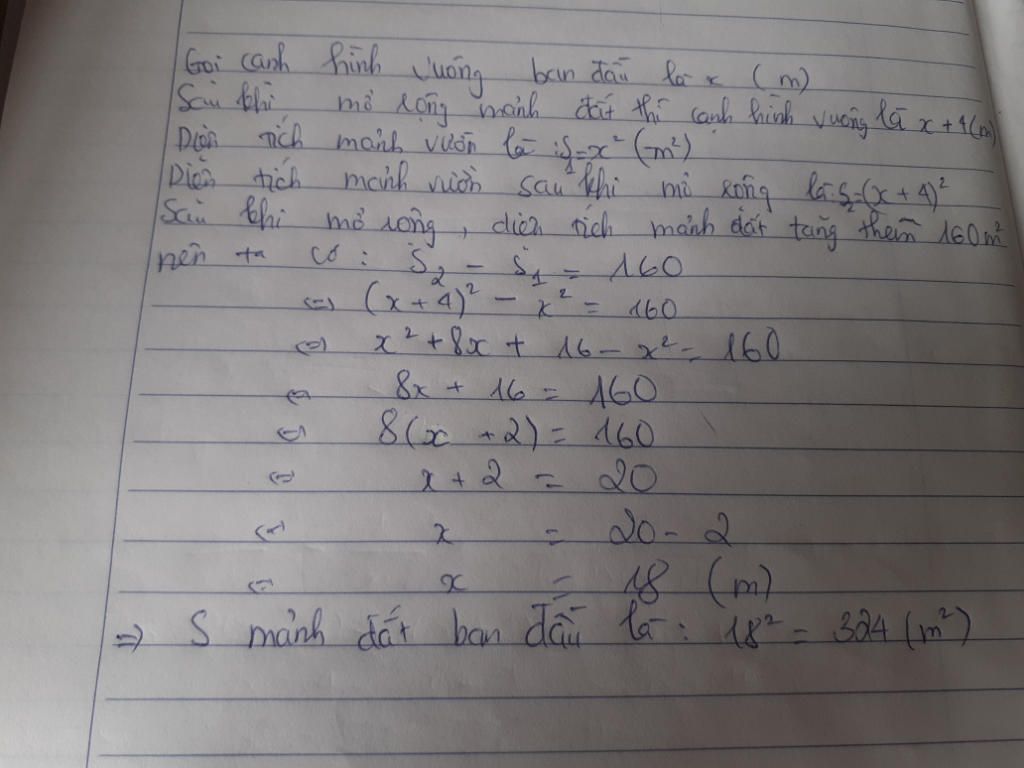 Gọi cạnh hình vuông ban đầu là x (m)
Sau khi mở rộng mảnh đất thì cạnh hình vuông là x + 4(m)
Diện tích mảnh vườn là : S₁=x² (m²)
Diện tích mảnh vườn sau khi mở rộng là: S₂=(x + 4)²
Sau khi mở rộng, diện tích mảnh đất tăng thêm 160m²
nên ta có : S₂ - S₁ = 160
⇔ (x + 4)² - x² = 160
⇔ x² + 8x + 16 - x² = 160
⇔ 8x + 16 = 160
⇔ 8(x + 2) = 160
⇔ x + 2 = 20
⇔ x = 20 - 2
⇔ x = 18 (m)
⇒ S mảnh đất ban đầu là : 18² = 324 (m²)